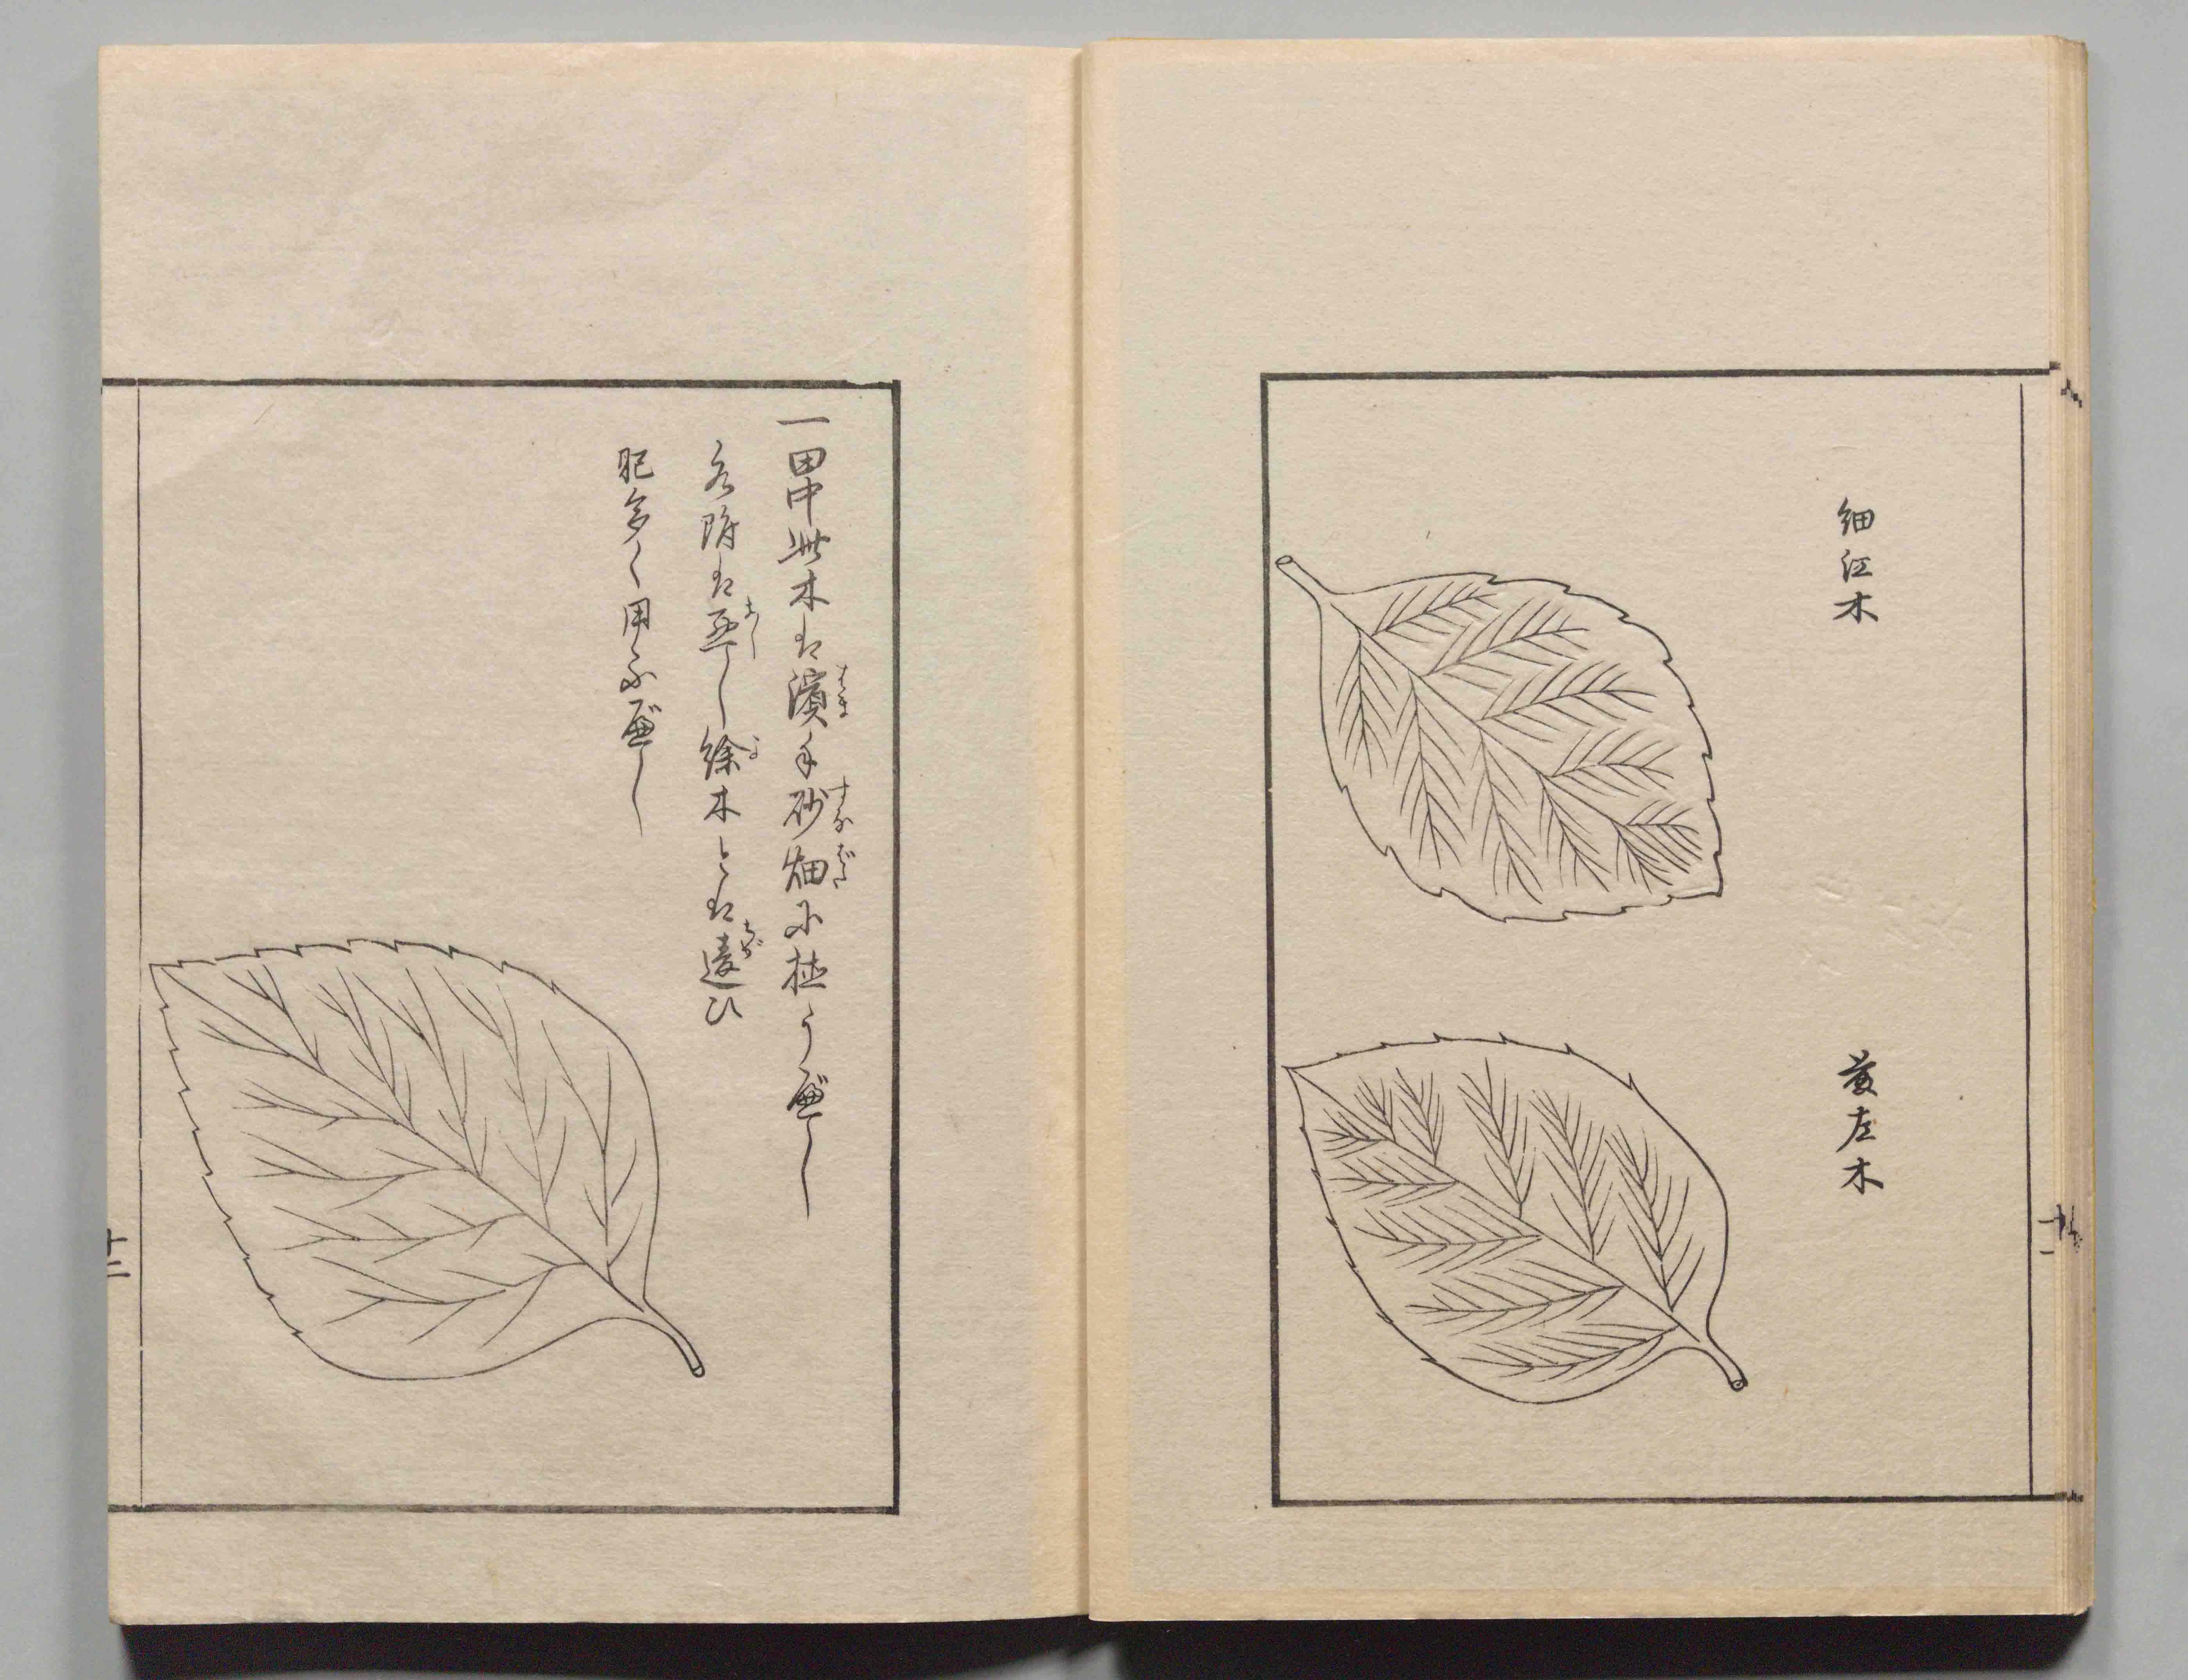 細江木
左木
一田中此木は濱手砂畑に植うべし
陰は悪し餘木とは違ひ
肥多く用ふべし
十三